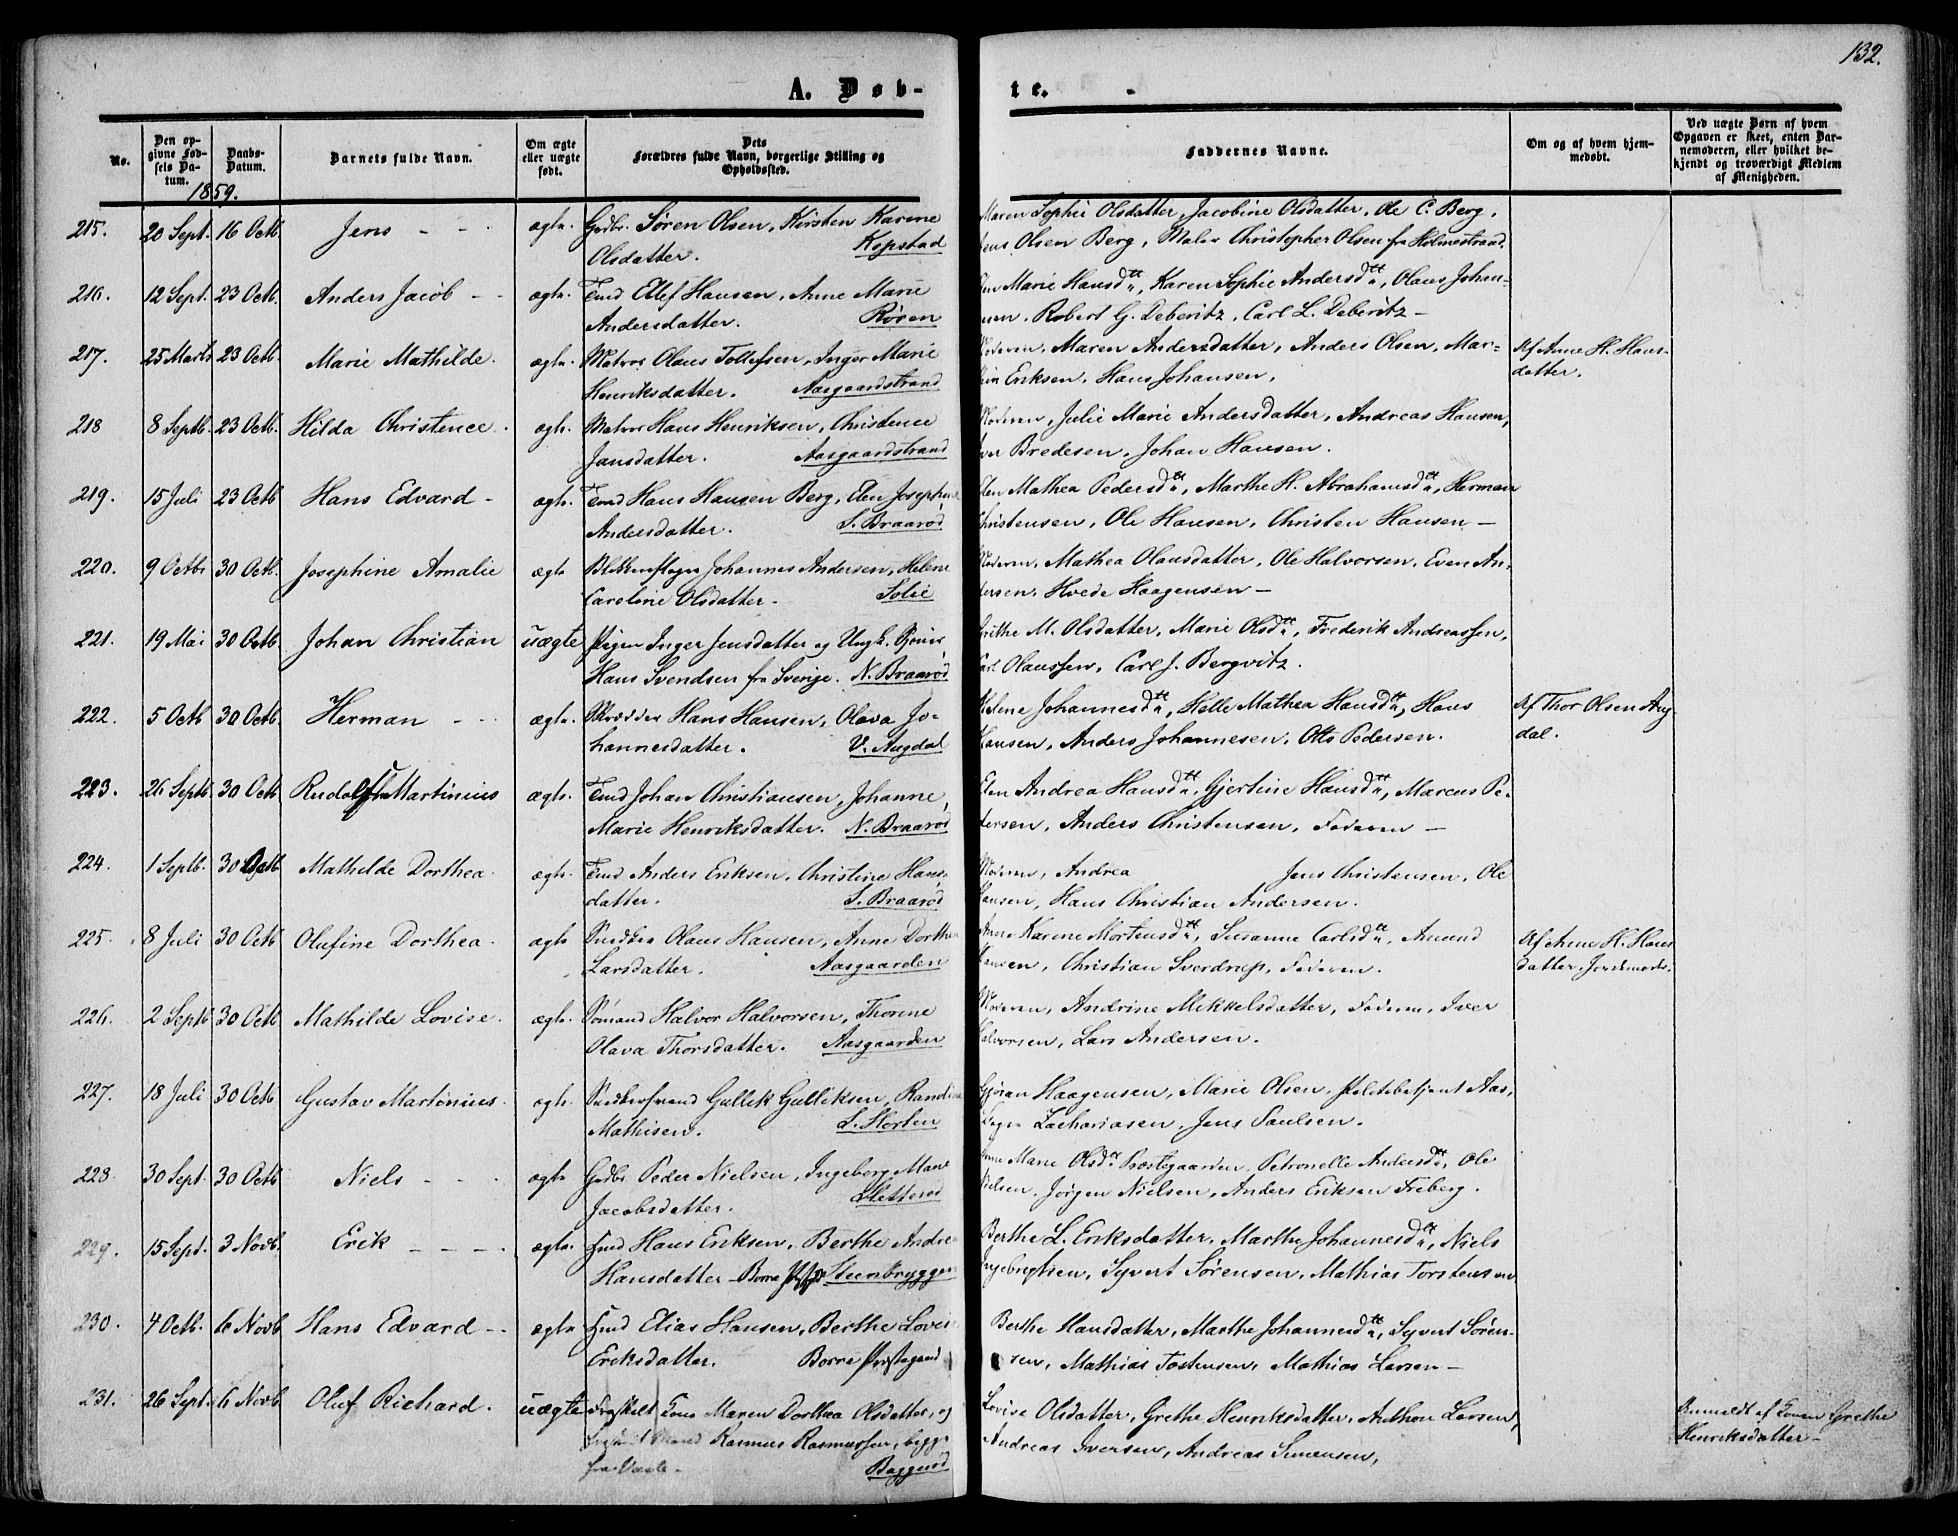 132.
A. Døb-
te.
No.
Den op-
givne Fød-
sels Da-
tum.
Daabs-
Datum.
Barnets fulde Navn.
Om ægte
eller uægte
født.
Dets
Forældres fulde Navn, borgerlige Stilling og
Opholdssted.
Faddernes Navne.
Om og af hvem hjem-
medøbt.
Ved uægte Børn af hvem
Opgaven er skeet, enten Bar-
nemoderen, eller hvilket be-
kjendt og troværdigt Medlem
af Menigheden.
1859.
215. 20 Sept. 16 Octb Jens - - ægte. Gdbr. Søren Olsen, Kirsten Karine Maren Sophie Olsdatter, Jacobine Olsdatter, de C. Berg,
Olsdatter. Kopstad Jens Olsen Berg, Maler Christopher Olsen fra Holmestrand.
216. 12 Sept. 23 Octb. Anders Jacob - - ægte. Tmd Ellef Hansen, Anne Marie Marie Hansdtr, Karen Sophie Andersdtr, Olaus Johan-
Andersdatter. Røren sen, Robert G. Deberitz, Carl L. Deberitz -
217. 25 Marts 23 Octb. Marie Mathilde. ægte. Matros Olaus Tollefsen, Inger Marie Moderen, Maren Andersdatter, Anders Olsen, Mar- Af Anne H. Hans-
Henriksdatter. Aasgaardstrand Eriksen, Hans Johansen. datter.
218 8 Septb. 23 Octb. Hilda Christence. ægte. Matros Hans Henriksen, Christence Moderen, Julie Marie Andersdatter, Andreas Hansen,
Jansdatter. Aasgaardstrand Iver Bredesen, Johan Hansen.
219. 15 Juli 23 Octb Hans Edvard - ægte. Tmd Hans Hansen Berg, Elen Josephine Elen Mathea Pedersdtr, Marthe H. Abrahamsdtr, Herman
Andersdatter. S. Braarød Christensen, Ole Hansen, Christen Hansen -
220. 9 Octbr 30 Octb. Josephine Amalie ægte Blikkenslager Johannes Andersen, Helene Moderen, Mathea Olausdatter, Ole Halvorsen, Even An-
Caroline Olsdatter. Solie dersen, Hvede Haagensen -
221. 19 Mai 30 Octb. Johan Christian uægte Pigen Inger Jensdatter og Ungk. Grethe M. Olsdatter, Marie Olsdtr, Frederik Andreassen,
Hans Svendsen fra Sverige. N. Braarød Carl Olaussen, Carl J. Bergvitz.
222. 5 Octb 30 Octb. Herman - - ægte. Skrædder Hans Hansen, Olava Jo- Helene Johannesdtr, Helle Mathea Hansdtr, Hans Af Thor Olsen Aug-
hannesdatter. V. Augdal Hansen, Anders Johannesen, Otto Pedersen. dal.
223. 26 Septb 30 Octb Rudolf Martinius ægte. Tmd Johan Christiansen, Johanne Elen Andrea Hansdtr, Gjertine Hansdtr, Marcus Pe-
Marie Henriksdatter. N. Braarød tersen, Anders Christensen, Faderen -
224. 1 Septb. 30 Octb Mathilde Dorthea. ægte. Tmd Anders Eriksen, Christine Hans- Moderen, Andrea Jens Christensen, Ole
datter. S. Braarød Hansen, Hans Christian Andersen.
225. 8 Juli 30 Octb Olufine Dorthea. ægte Snedker Olaus Hansen, Anne Dorthea Anne Karine Mortensdtr, Susanne Carlsdtr, Amund Af Anne H. Hans
Larsdatter. Aasgaarden Hansen, Christian Sverdrup, Faderen. datter, Jordemoder.
226. 2 Septb 30 Octb Mathilde Lovise. ægte. Sømand Halvor Halvorsen, Thorine Moderen, Andrine Mikkelsdatter, Faderen, Iver
Olava Thorsdatter. Aasgaarden Halvorsen, Lars Andersen.
227. 18 Juli 30 Octb Gustav Martinius. ægte. Snedkersvend Gullik Gulliksen, Randine Gjøran Haagensen, Marie Olsen, Politibetjent Aas,
Mathisen. L. Horten Zachariasen, Jens Paulsen.
228. 30 Sept. 30 Octb Niels - - - ægte Gdbr Peder Nielsen, Ingeborg Marie Anne Marie Olsdtr Præstegaarden, Petronelle Andersdtr, Ole
Jacobsdatter. Sletterød Nielsen, Jørgen Nielsen, Anders Eriksen Freberg.
229. 15 Sept. 3 Novb. Erik - - - - ægte. Hmd Hans Eriksen, Berthe Andrea Berthe L. Eriksdatter, Marthe Johannesdtr, Niels
Hansdatter - Borre Steenbryggen Ingebrigtsen, Syvert Sørensen, Mathias Torstensen
230. 4 Octb. 6 Novb Hans Edvard - - ægte Hmd Elias Hansen, Berthe Lovise Berthe Hansdatter, Marthe Johannesdtr, Syvert Søren-
Eriksdatter. Borre Præstegaard sen, Mathias Tostensen, Mathias Larsen -
231. 26 Sept. 6 Novb Oluf Richard. uægte Fraskilt Kone Maren Dorthea Olsdatter, og Lovise Olsdatter, Grethe Henriksdatter, Anthon Larsen, Anmeldt af Konen Grethe
Fraskilt Mand Rasmus Rasmussen, begge Andreas Iversen, Andreas Simensen, Henriksdatter -
fra Baggerød